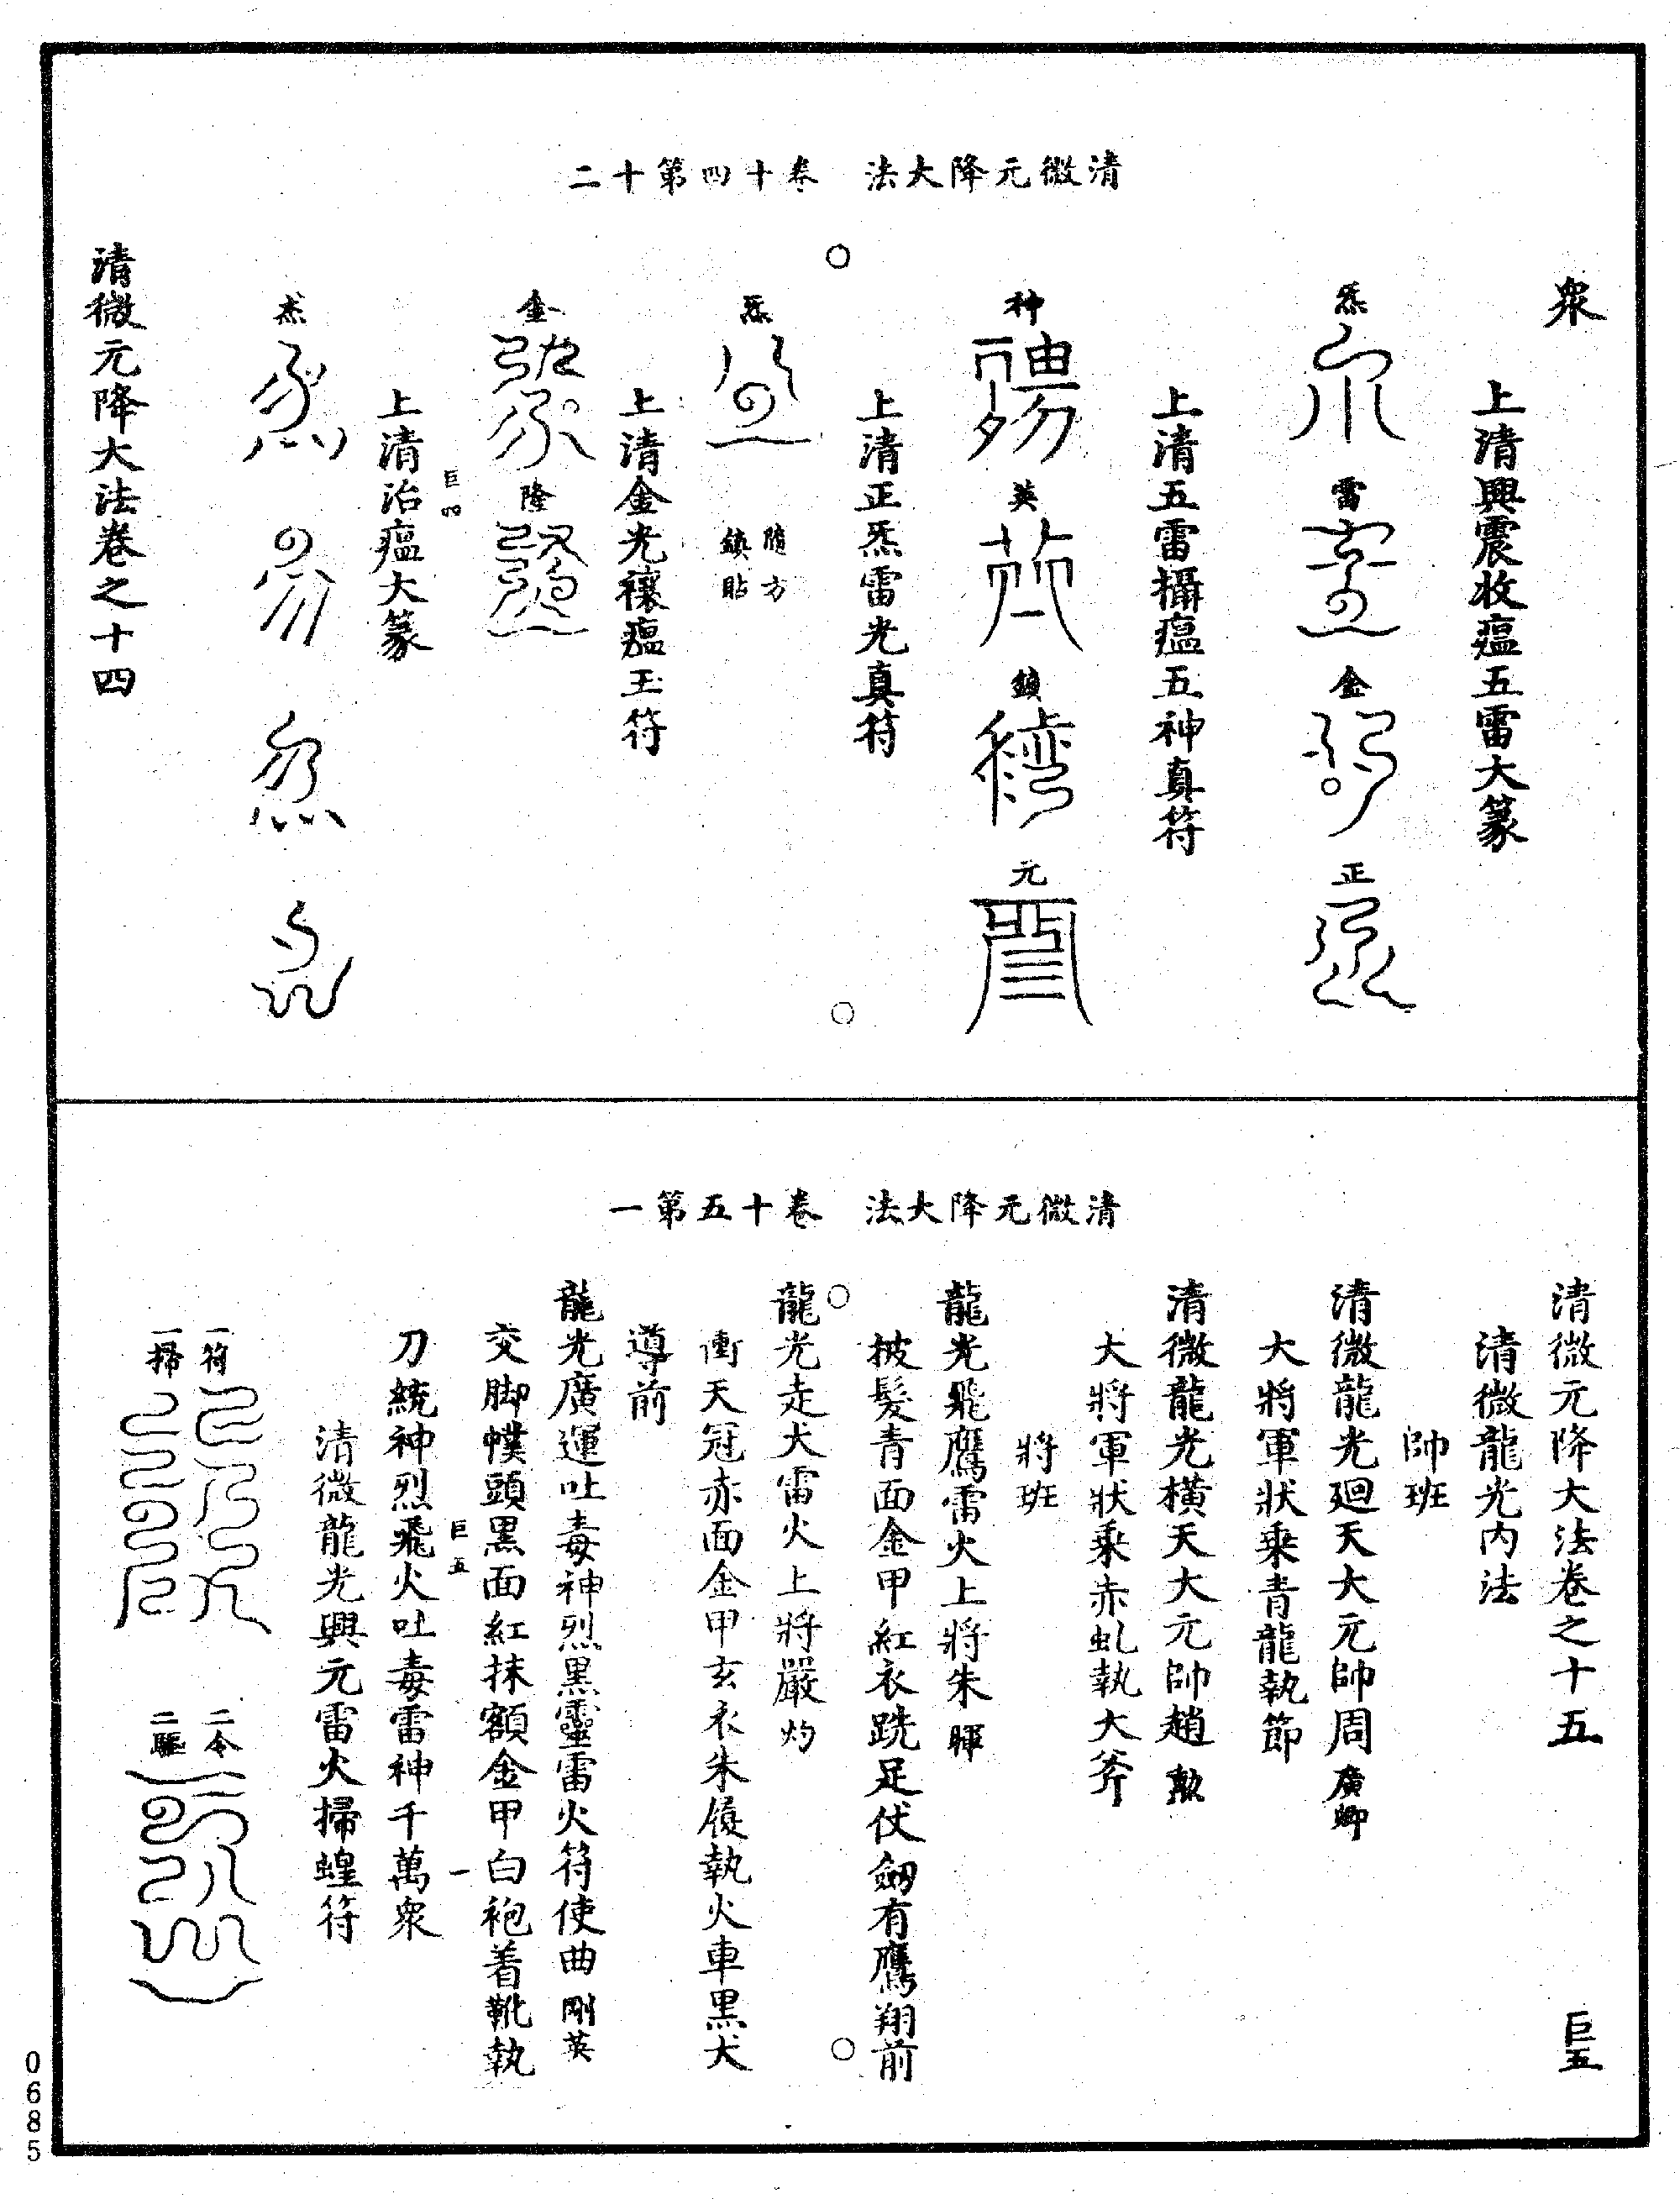 清微元降大法　卷十四第十二
衆
上清興震收瘟五雷大篆
炁　雷　金　正
上清五雷攝瘟五神真符
神　英　鎖　元
上清正炁雷光真符
炁　隨方鎮貼
上清金光禳瘟玉符
金　隆
巨四
上清治瘟大篆
杰
清微元降大法卷之十四
清微元降大法　卷十五第一
清微元降大法卷之十五　巨五
清微龍光內法
帥班
清微龍光廻天大元帥周廣卿
大將軍狀乘青龍執節
清微龍光橫天大元帥趙歘
大將軍狀乘赤虬執大斧
將班
龍光飛鷹雷火上將朱暉
披髮青面金甲紅衣跣足仗劒有鷹翔前
龍光走犬雷火上將嚴灼
衝天冠赤面金甲玄衣朱履執火車黑犬
導前
龍光廣運吐毒神烈黑靈雷火符使曲剛英
交脚幞頭黑面紅抹額金甲白袍着靴執
巨五　一
刀統神烈飛火吐毒雷神千萬衆
清微龍光興元雷火掃蝗符
一符　二令
一掃　二驅
0685